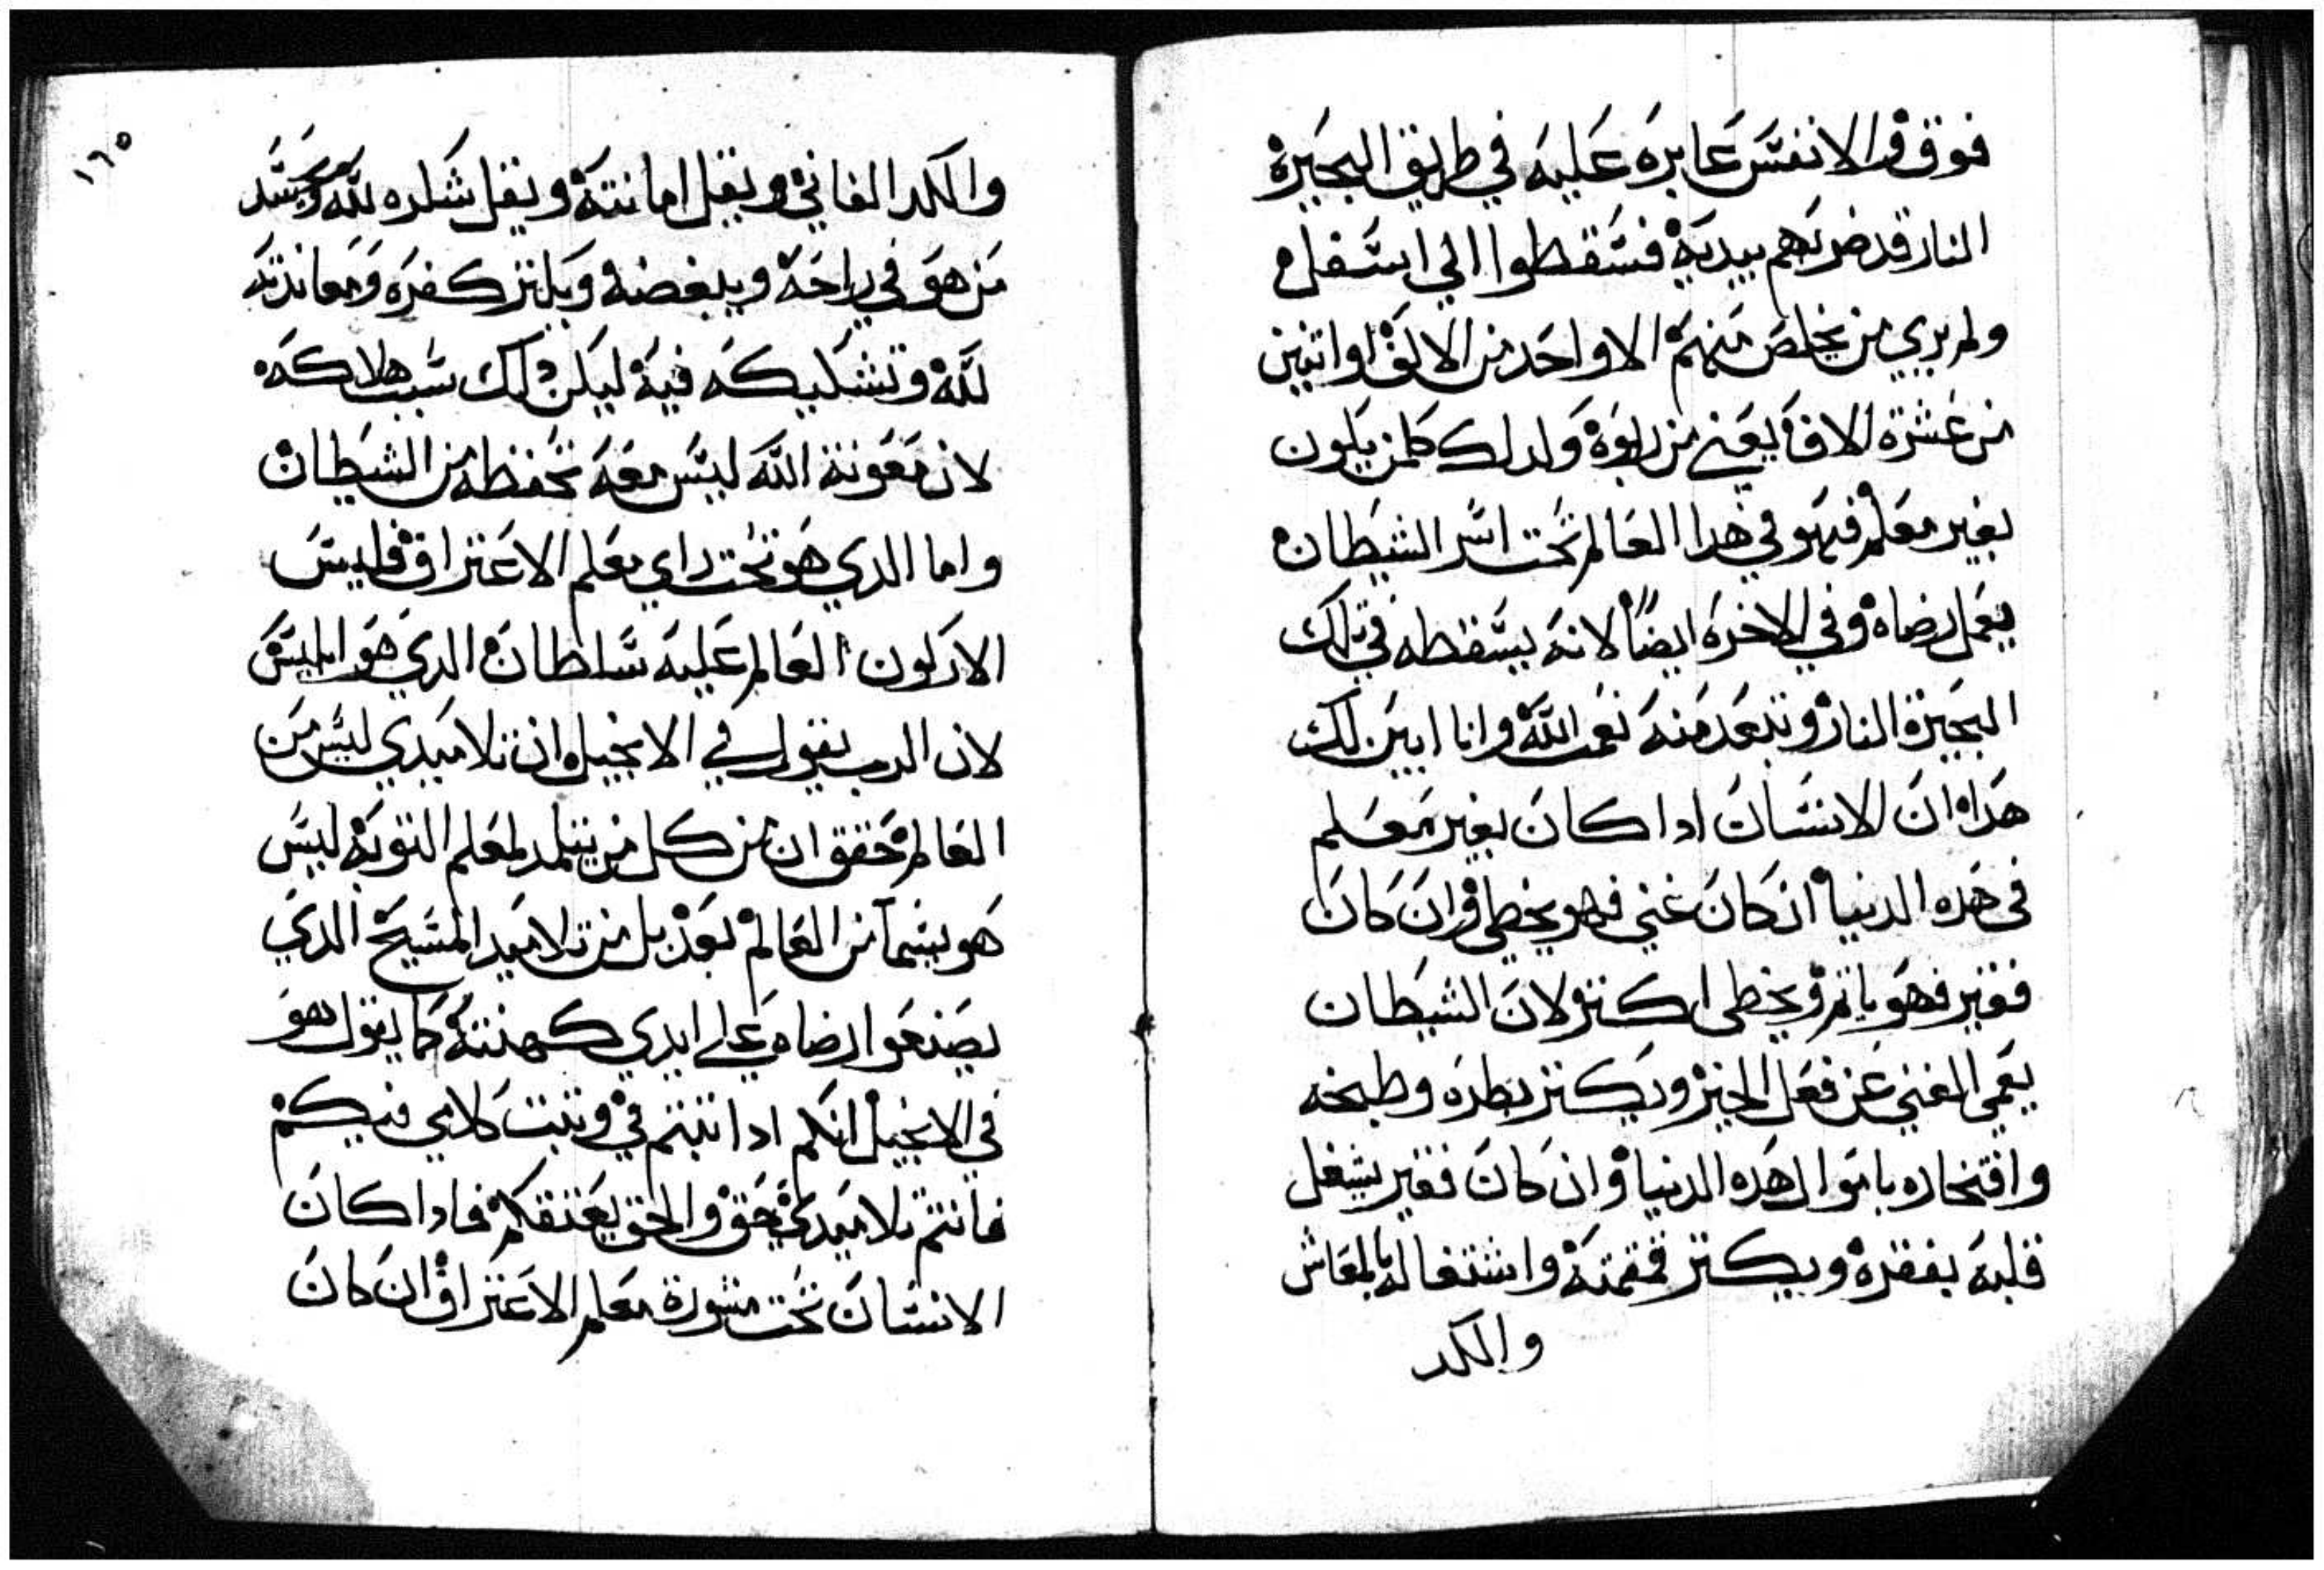 فوق والانفس عابره عليه في طريق البحيرة
النار قد ضربهم بيديه فسقطوا الي اسفل
ولم يري من يخلص منهم الا واحد من الالف او اتنين
من عشرة الاف يعني من ربوة ولدلك كلمن يكون
بغير معلم فهو في هدا العالم تحت اسر الشيطان
يعمل رضاه وفي الاخره ايضا لانه يسقطه في تلك
البحيرة النار وتبعد منه نعمت الله وانا ابين لك
هدا ان الانسان ادا كان بغير معلم
في هده الدنيا ان كان غني فهو يخطي وان كان
فقير فهو ياتم ويخطي اكتر لان الشيطان
يعمي الغني عن فعل الخير ويكتر بطره وطبخه
وافتخاره باموال هده الدنيا وان كان فقير يشغل
قلبه بفقره ويكتر قمقمته واشتغاله بالمعاش
والكد
١٦٥
والكد الفاني ويقل امانته ويقل شكره لله ويحسد
من هو في راحه ويبغضه ويكتر كفره ومعاندته
لله وتشكيكه فيه ليكن دلك سبب هلاكه
لان معونة الله ليس معه تحفظه من الشيطان
واما الدي هو تحت راي معلم الاعتراف فليس
الاركون العالم عليه سلطان الدي هو ابليس
لان الرب يقول في الانجيل ان تلاميدي ليس من
العالم محقق ان من كل من يتلمد لمعلم التوبة ليس
هو ينتما من العالم بعد بل من تلاميد المسيح الدي
يصنعوا رضاه علي ايدي كهنته كما يقول هو
في الانجيل انكم ادا تبتم في وتبت كلامي فيكم
فانتم تلاميدي بحق والحق يعتقكم فادا كان
الانسان تحت مشورة معلم الاعتراف ان كان